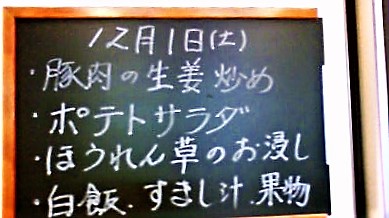 12月1日(土)
・豚肉の生姜炒め
・ポテトサラダ
・ほうれん草のお浸し
・白飯.すまし汁.果物